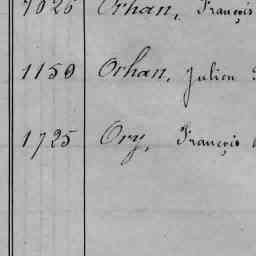 1026 Orhan, François
1159 Orhan, Julien
1725 Ory, François